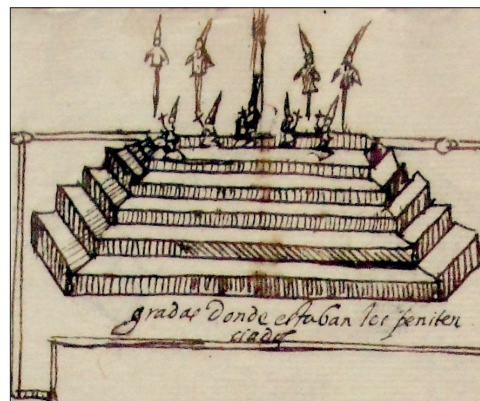 gradas donde estaban los peniten
ciados